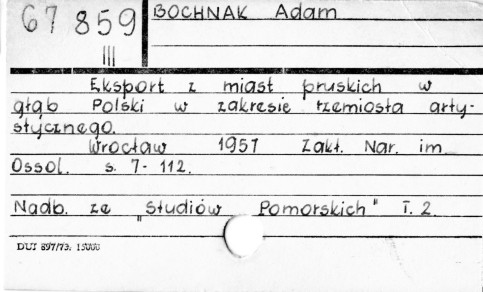 67 859
III
BOCHNAK Adam
Eksport z miast pruskich w
głąb Polski w zakresie rzemiosła arty-
stycznego.
Wrocław 1957 Zakł. Nar. im.
Ossol. s. 7-112.
Nadb. ze "Studiów Pomorskich" T. 2.
DUJ 897/73: 15000